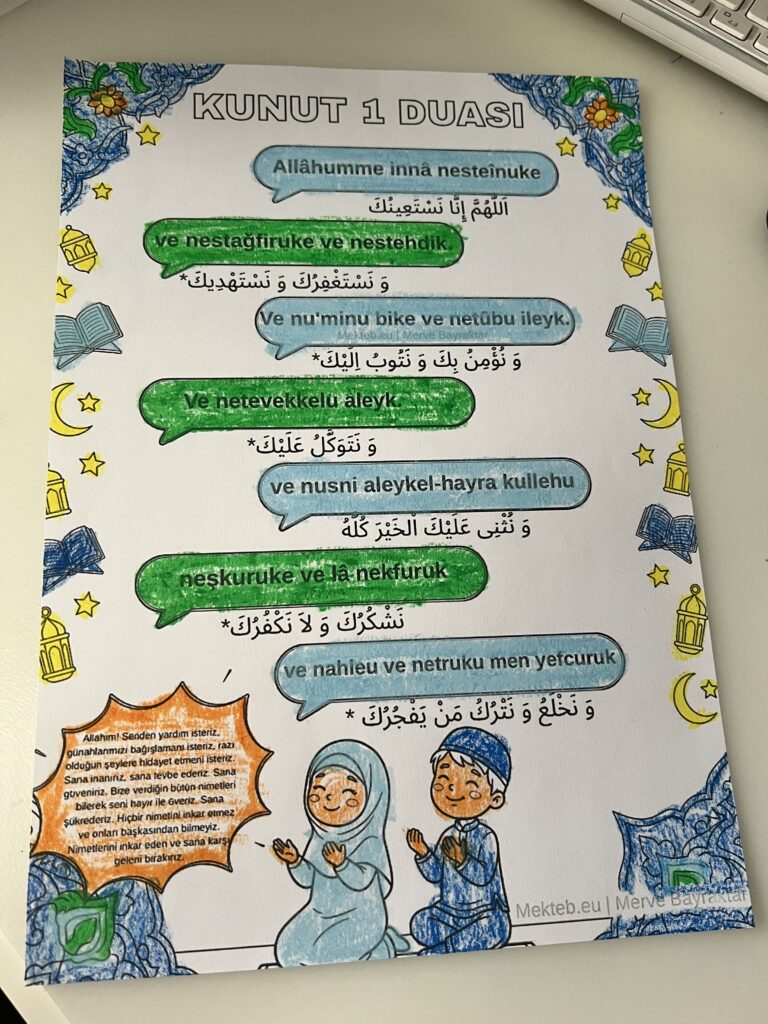 KUNUT 1 DUASI
Allâhumme innâ nesteînuke
اَللّٰهُمَّ إِنَّا نَسْتَعِينُكَ
ve nestağfiruke ve nestehdik.
وَ نَسْتَغْفِرُكَ وَ نَسْتَهْدِيكَ*
Ve nu'minu bike ve netûbu ileyk.
Mekteb.eu | Merve Bayraktar
وَ نُؤْمِنُ بِكَ وَ نَتُوبُ اِلَيْكَ*
Ve netevekkelu aleyk.
وَ نَتَوَكَّلُ عَلَيْكَ*
ve nusni aleykel-hayra kullehu
وَ نُثْنِى عَلَيْكَ الْخَيْرَ كُلَّهُ
neşkuruke ve lâ nekfuruk
نَشْكُرُكَ وَ لاَ نَكْفُرُكَ*
ve nahleu ve netruku men yefcuruk
وَ نَخْلَعُ وَ نَتْرُكُ مَنْ يَفْجُرُكَ *
Allahım! Senden yardım isteriz,
günahlarımızı bağışlamanı isteriz, razı
olduğun şeylere hidayet etmeni isteriz.
Sana inanırız, sana tevbe ederiz. Sana
güveniriz. Bize verdiğin bütün nimetleri
bilerek seni hayır ile överiz. Sana
şükrederiz. Hiçbir nimetini inkar etmez
ve onları başkasından bilmeyiz.
Nimetlerini inkar eden ve sana karşı
geleni bırakırız.
Mekteb.eu | Merve Bayraktar